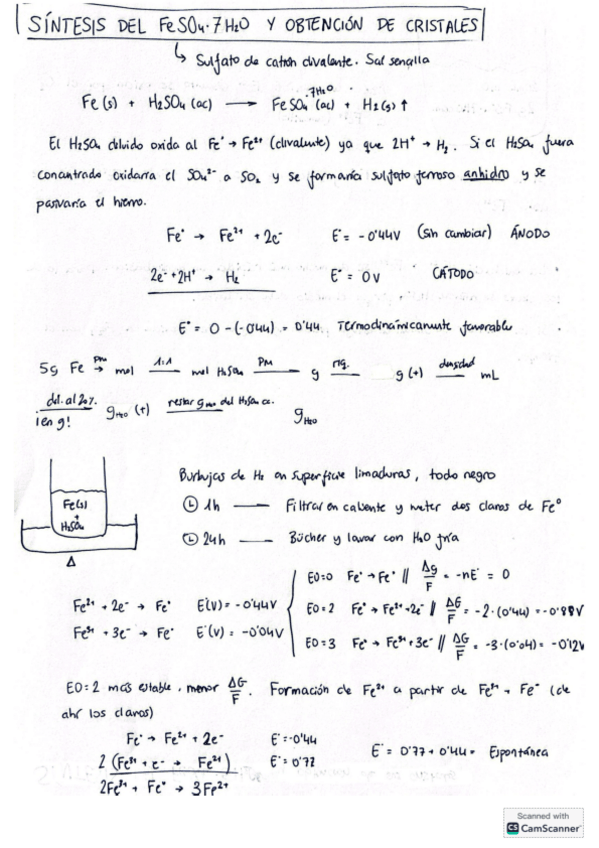 SÍNTESIS DEL FeSO₄·7H₂O Y OBTENCIÓN DE CRISTALES
↳ Sulfato de catión divalente. Sal sencilla
Fe(s) + H₂SO₄(ac) → FeSO₄·7H₂O(ac) + H₂(s)↑
El H₂SO₄ diluido oxida al Fe° → Fe²⁺ (divalente) ya que 2H⁺ → H₂. Si el H₂SO₄ fuera
concentrado oxidaría el SO₄²⁻ a SO₂ y se formaría sulfato ferroso anhidro y se
pasivaría el hierro.
Fe° → Fe²⁺ + 2e⁻ E° = -0'44V (sin cambiar) ÁNODO
2e⁻ + 2H⁺ → H₂ E° = 0V CÁTODO
E° = 0 - (-0'44) = 0'44. Termodinámicamente favorable
5g Fe PM → mol 1:1 mol H₂SO₄ PM g riq. g(+) densidad mL
dil. al 20%. ¡en g! g H₂O (+) restar g H₂O del H₂SO₄ cc. g H₂O
Burbujas de H₂ en superficie limaduras, todo negro
Fe(s)
+
H₂SO₄
Δ
1h — Filtrar en caliente y meter dos clavos de Fe°
24h — Büchner y lavar con H₂O fría
EO=0 Fe° → Fe° // ΔG/F = -nE° = 0
Fe²⁺ + 2e⁻ → Fe° E°(V) = -0'44V
EO=2 Fe° → Fe²⁺ + 2e⁻ // ΔG/F = -2·(0'44) = -0'88V
Fe³⁺ + 3e⁻ → Fe° E°(V) = -0'04V
EO=3 Fe° → Fe³⁺ + 3e⁻ // ΔG/F = -3·(0'04) = -0'12V
EO=2 más estable, menor ΔG/F. Formación de Fe²⁺ a partir de Fe³⁺ + Fe° (de
ahí los clavos)
Fe° → Fe²⁺ + 2e⁻ E° = -0'44
2 (Fe³⁺ + e⁻ → Fe²⁺) E° = 0'77
E° = 0'77 + 0'44 = Espontánea
2Fe³⁺ + Fe° → 3Fe²⁺
Scanned with
CS CamScanner